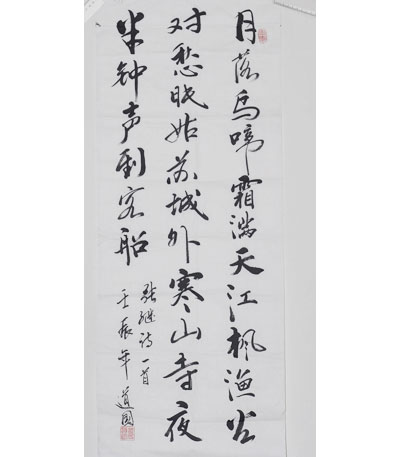 月落乌啼霜满天江枫渔火
对愁眠姑苏城外寒山寺夜
半钟声到客船
张继诗一首
壬辰年道国